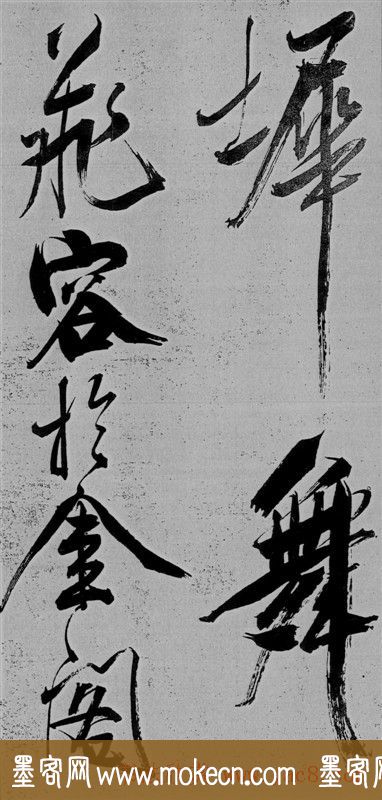 墀舞
飛容於金閣
墨客网 www.mokecn.com 墨客网